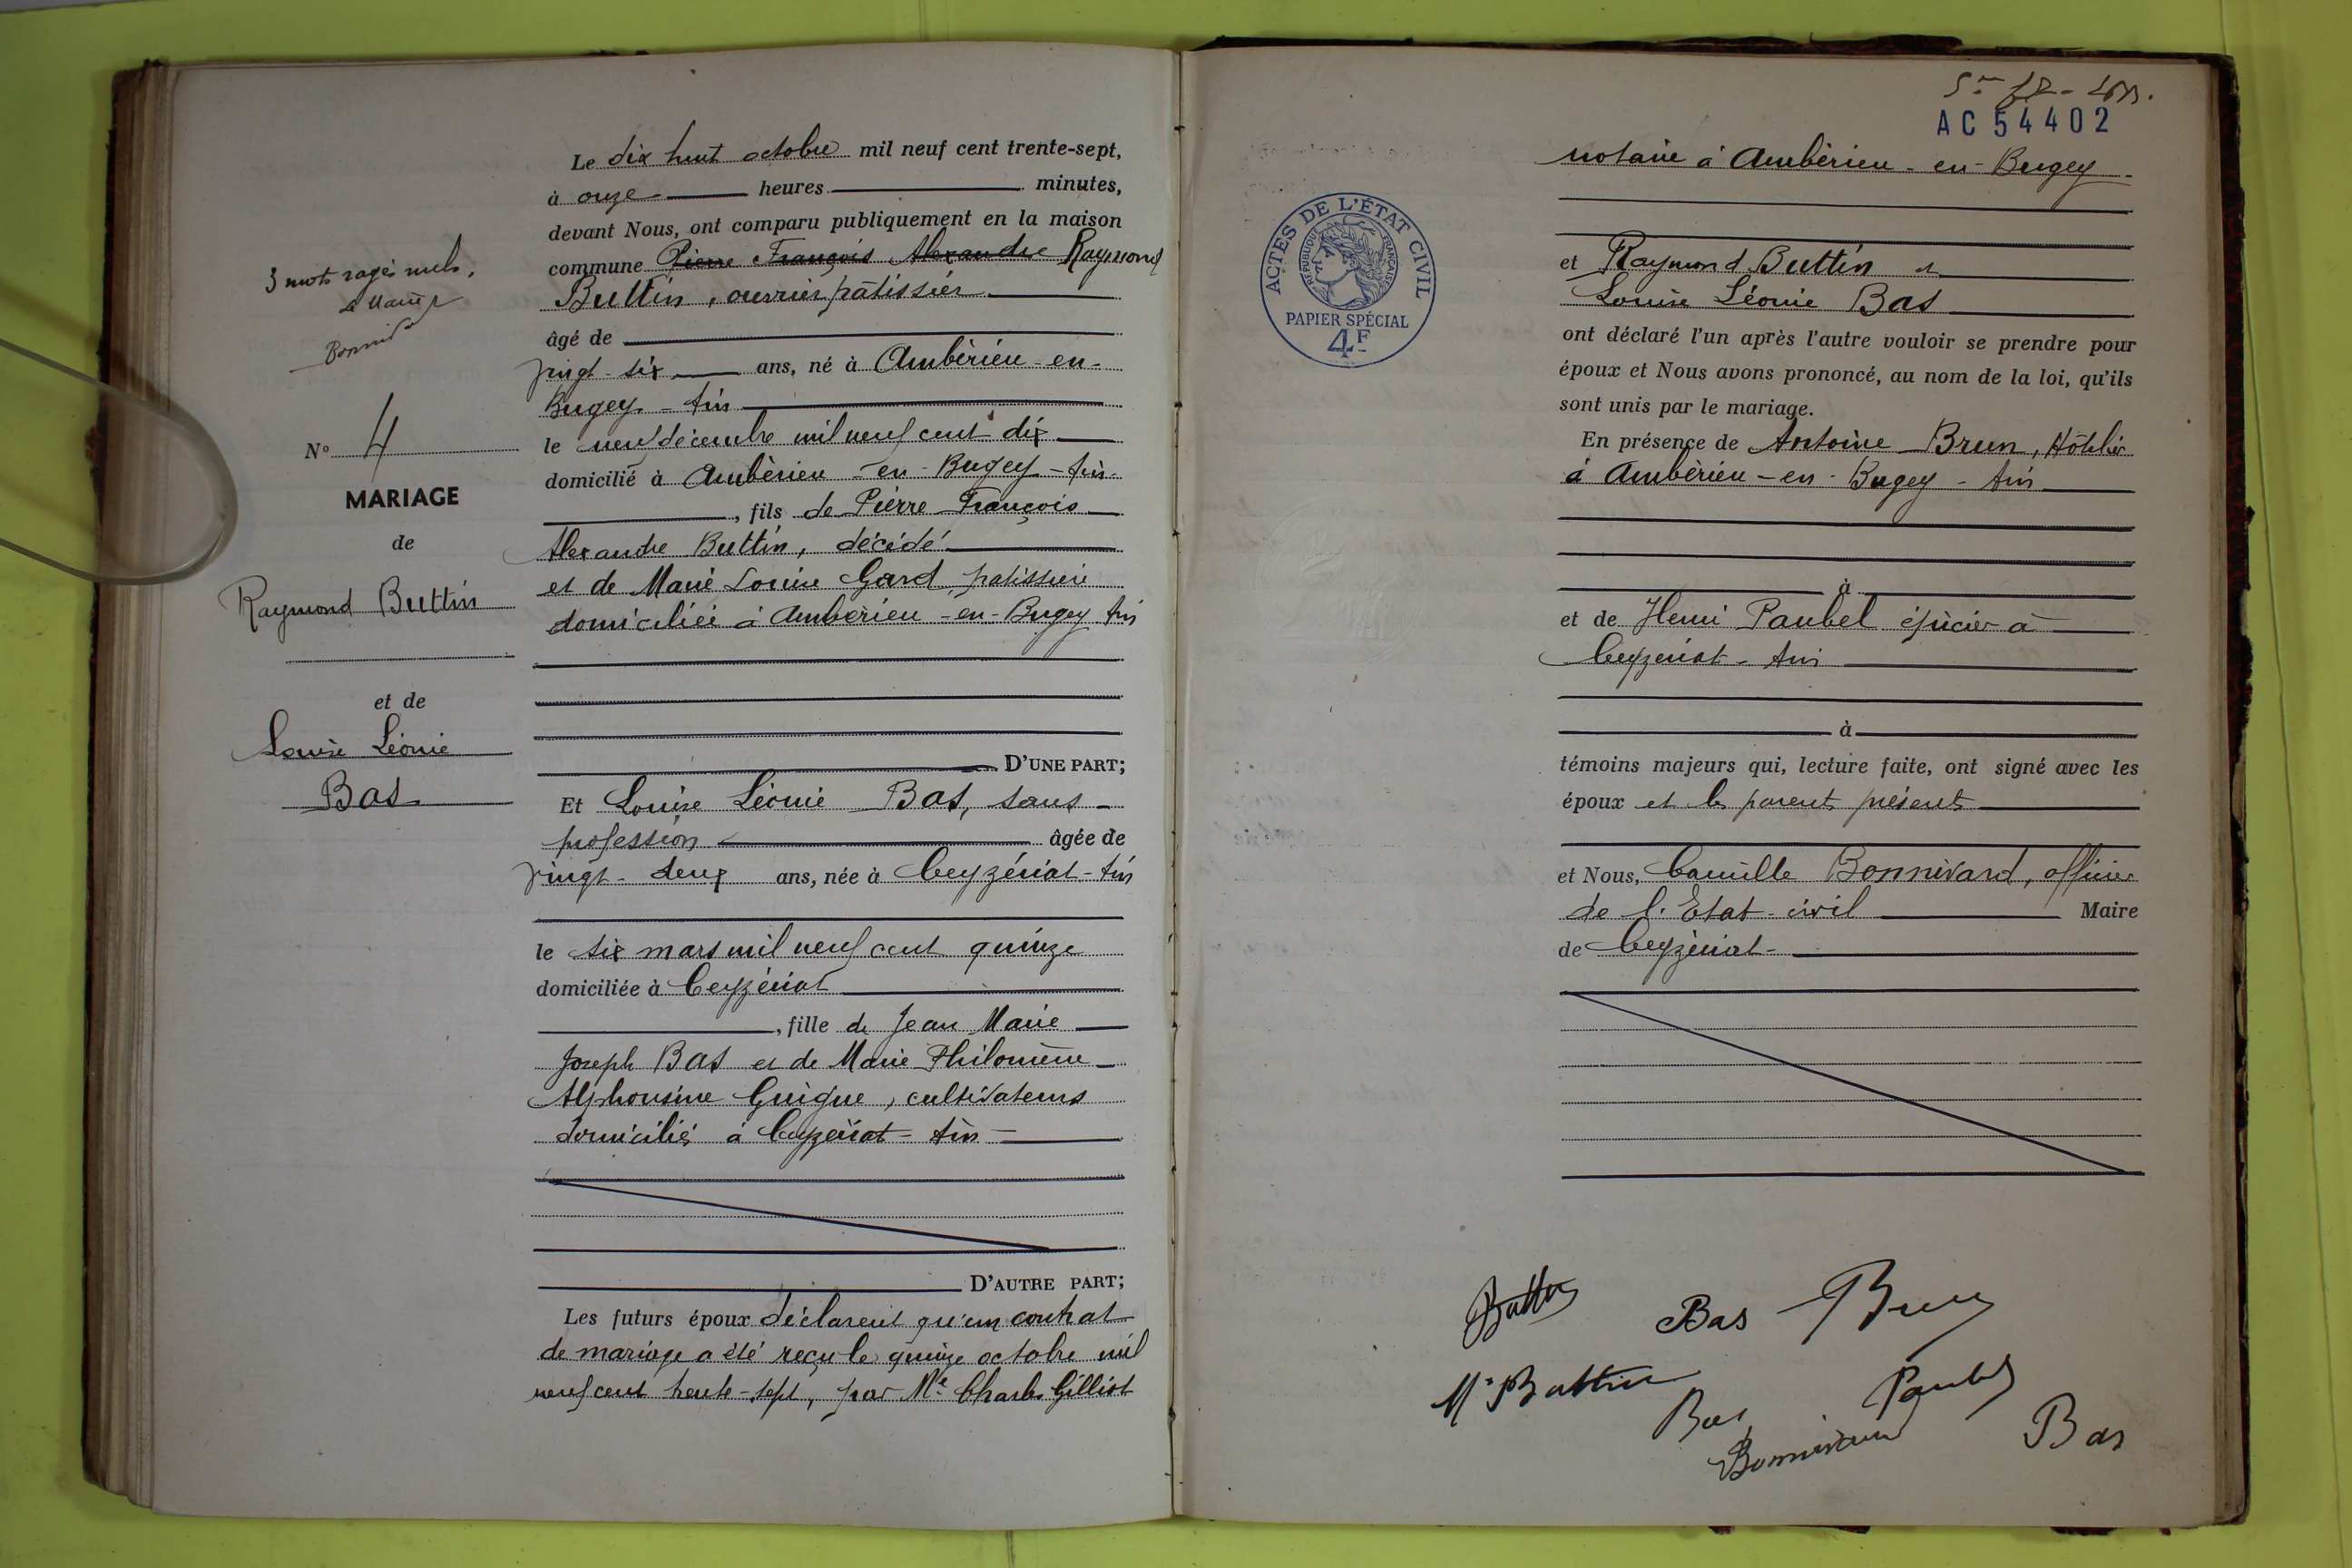 3 mots rayés nuls.
Le Maire
N° 4
MARIAGE
de
Raymond Buttin
et de
Louise Léonie
Bas
Le dix huit octobre mil neuf cent trente-sept,
à onze heures minutes,
devant Nous, ont comparu publiquement en la maison
commune Pierre François Alexandre Raymond
Buttin, ouvrier pâtissier
âgé de
vingt-six ans, né à Ambérieu-en-
Bugey - Ain
le neuf décembre mil neuf cent dix
domicilié à Ambérieu-en-Bugey-Ain
, fils de Pierre François
Alexandre Buttin, décédé
et de Marie Louise Gard, patissière
domiciliée à Ambérieu-en-Bugey Ain
D'UNE PART;
Et Louise Léonie Bas, sans
profession âgée de
vingt-deux ans, née à Ceyzériat-Ain
le six mars mil neuf cent quinze
domiciliée à Ceyzériat
, fille de Jean Marie
Joseph Bas et de Marie Philomène
Alphonsine Guigue, cultivateurs
domiciliés à Ceyzériat-Ain
D'AUTRE PART;
Les futurs époux déclarent qu'un contrat
de mariage a été reçu le quinze octobre mil
neuf cent trente-sept, par Me Charles Gilliot
AC 54402
notaire à Ambérieu-en-Bugey
ACTES DE L'ÉTAT CIVIL
RÉPUBLIQUE FRANÇAISE
PAPIER SPÉCIAL
4F
et Raymond Buttin et
Louise Léonie Bas
ont déclaré l'un après l'autre vouloir se prendre pour
époux et Nous avons prononcé, au nom de la loi, qu'ils
sont unis par le mariage.
En présence de Antoine Brun, Hôtelier
à Ambérieu-en-Bugey-Ain
à
et de Henri Paubel épicier à
Ceyzériat-Ain
à
témoins majeurs qui, lecture faite, ont signé avec les
époux et les parents présents
et Nous, Camille Bonnivard, officier
de l'Etat-civil Maire
de Ceyzériat-
Buttin Bas Brun
Me Buttin Bas Paubel
Bonnivard Bas